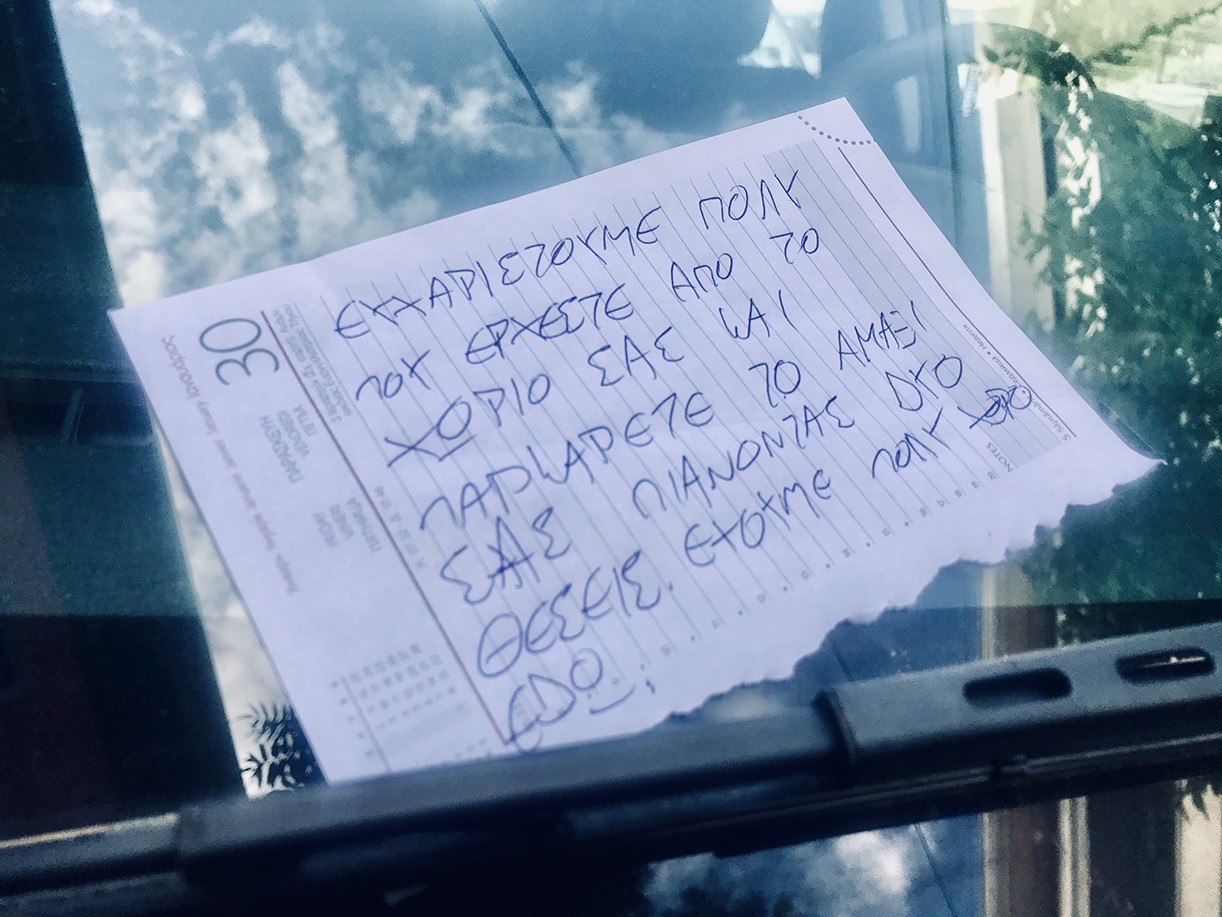 30
Januar January Ιανουάριος
ΠΑΡΑΣΚΕΥΗ
ΕΥΧΑΡΙΣΤΟΥΜΕ ΠΟΛΥ
ΠΟΥ ΕΡΧΕΣΤΕ ΑΠΟ ΤΟ
ΧΩΡΙΟ ΣΑΣ ΚΑΙ
ΠΑΡΚΑΡΕΤΕ ΤΟ ΑΜΑΞΙ
ΣΑΣ ΠΙΑΝΟΝΤΑΣ ΔΥΟ
ΘΕΣΕΙΣ. ΕΧΟΥΜΕ ΠΟΛΥ ΧΩΡΟ
ΕΔΩ!
NOTES